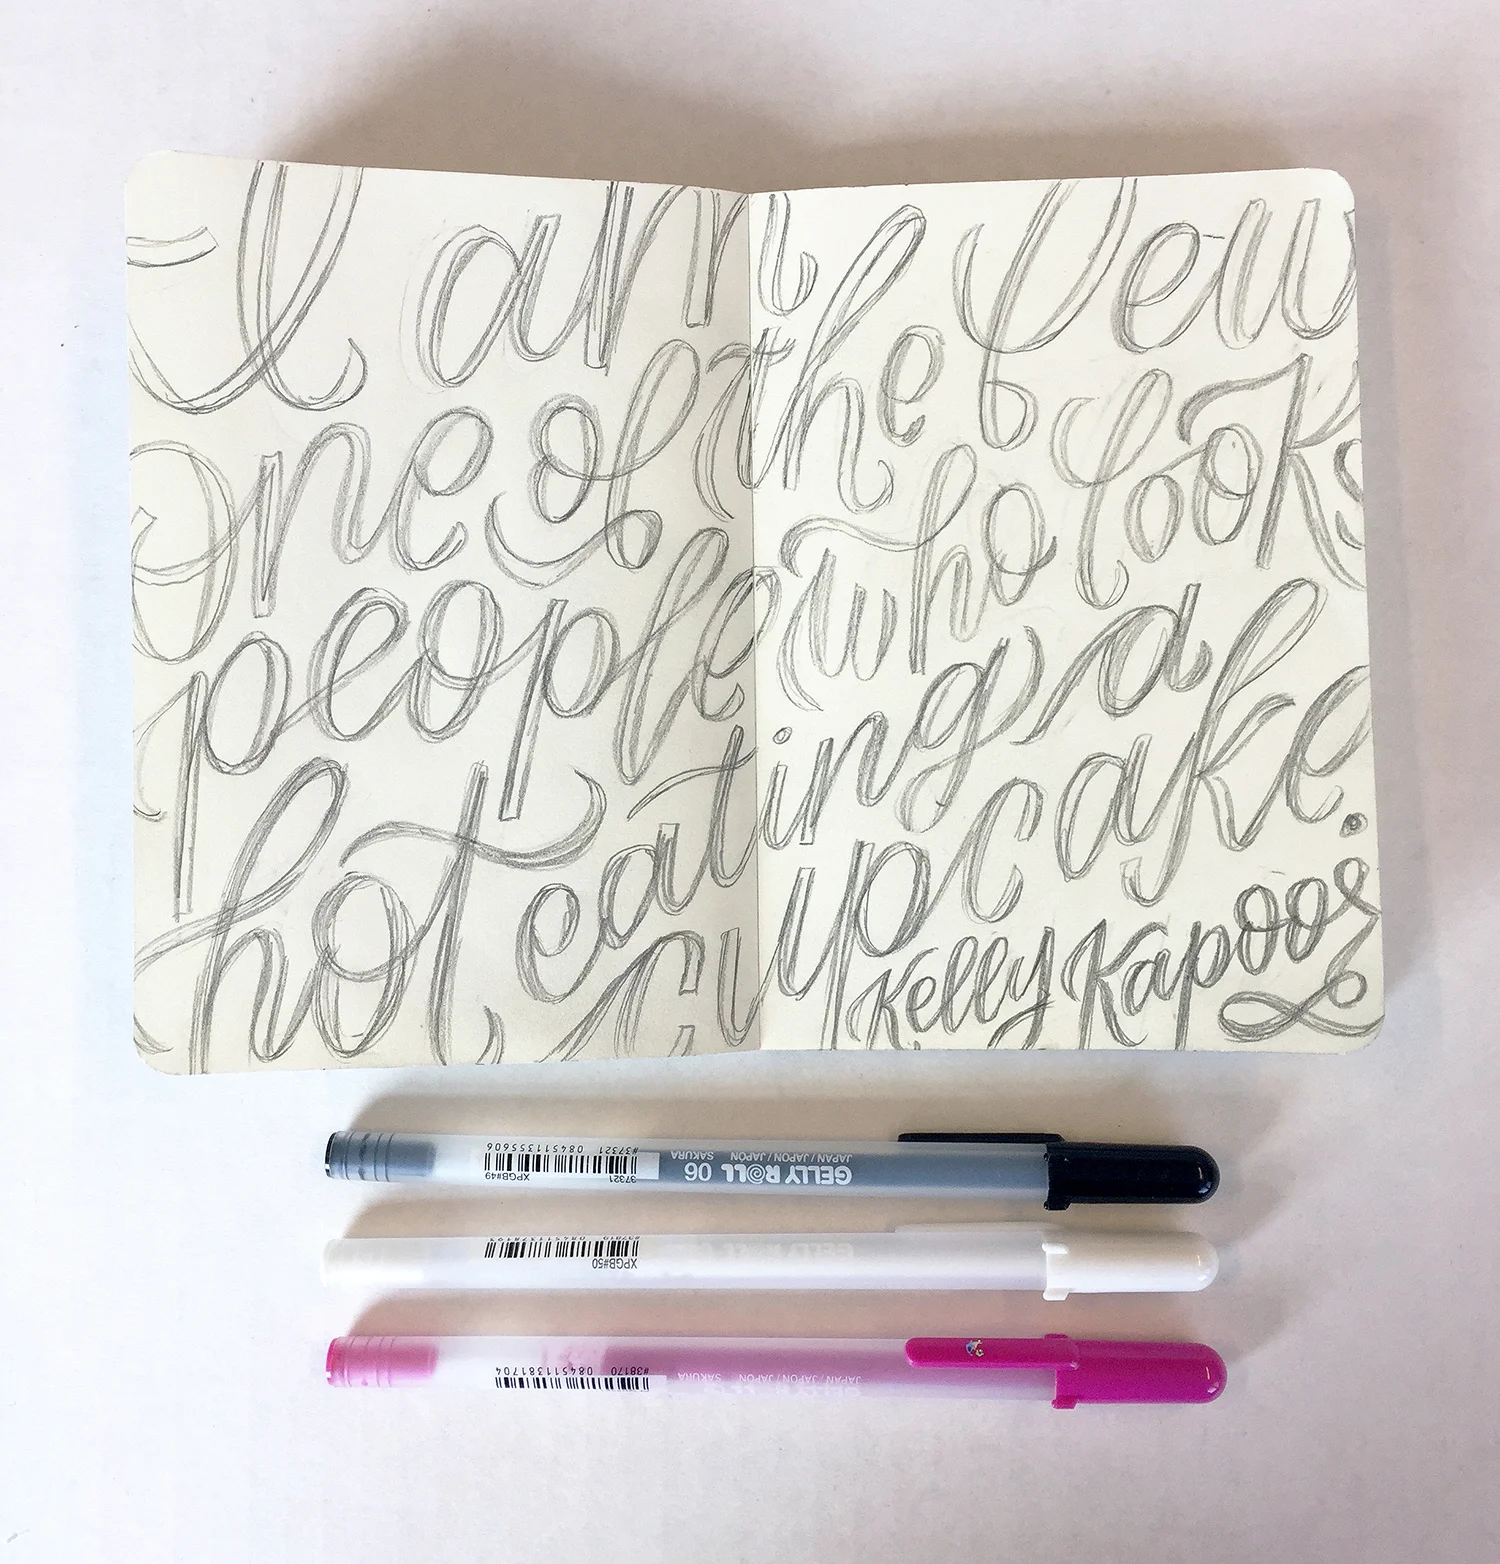 I am
one of the few
people who looks
hot eating a
cupcake.
Kelly Kapoor
GELLY ROLL 06
JAPAN / JAPON / JAPÓN SAKURA
37321 XPGB#49
#37321 084511355606
XPGB#50
JAPAN / JAPON / JAPÓN SAKURA
#38170 084511381704